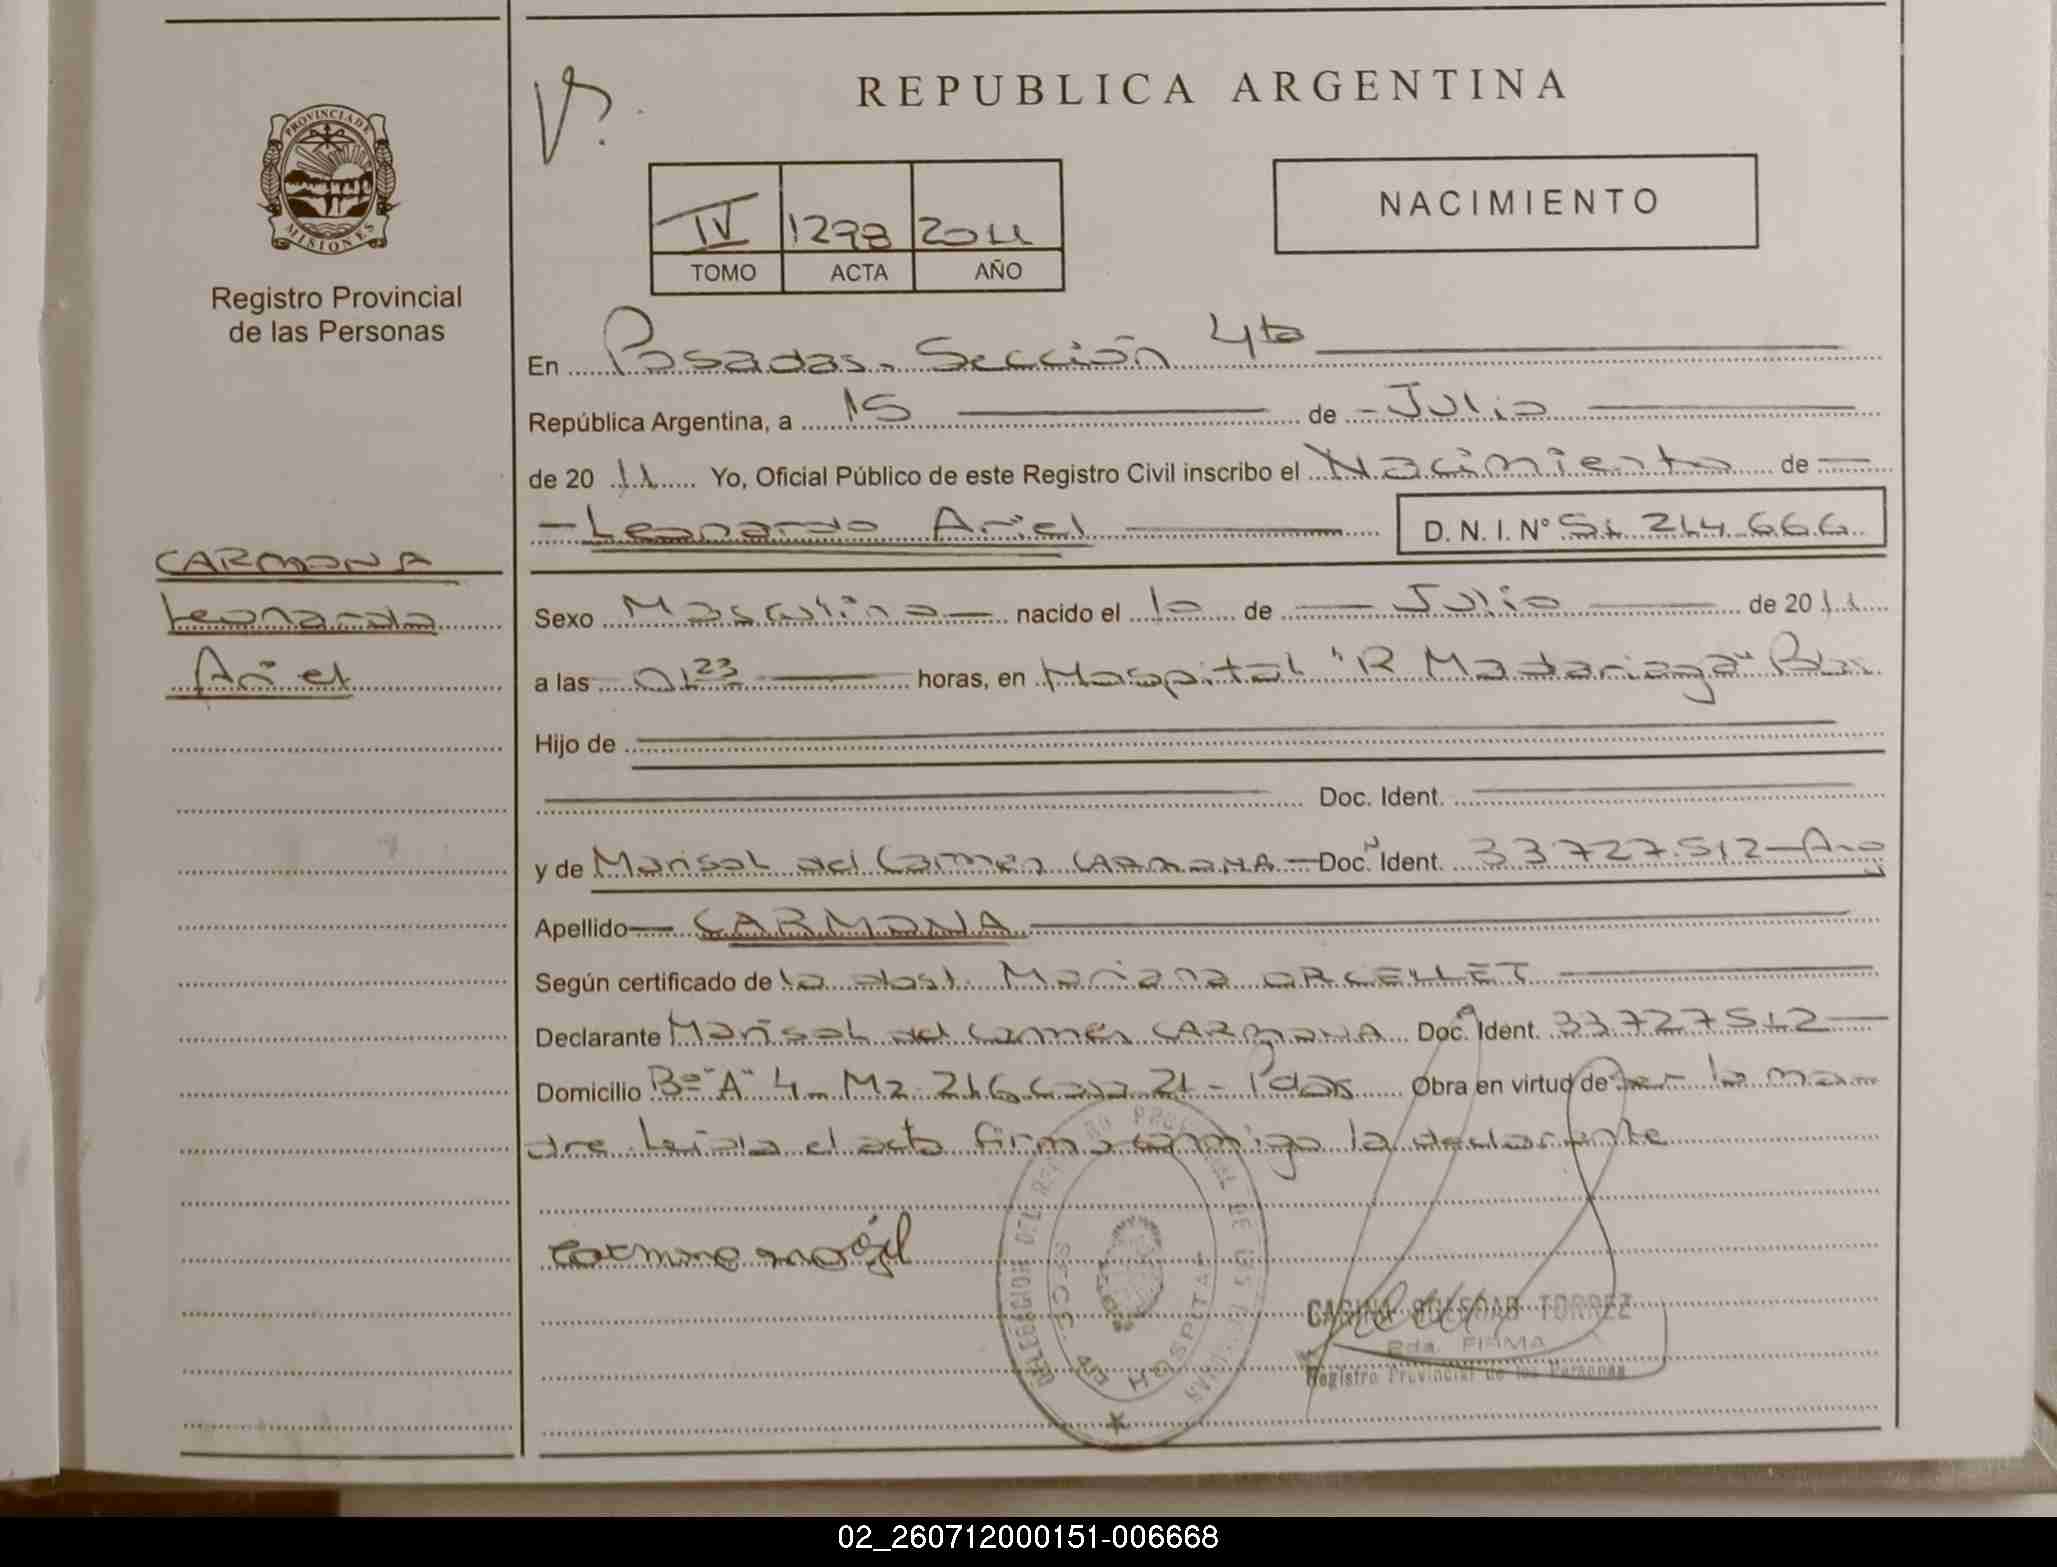 REPUBLICA ARGENTINA
PROVINCIA DE
MISIONES
Registro Provincial
de las Personas
IV 1298 2011
TOMO ACTA AÑO
NACIMIENTO
En Posadas, Sección 4ta
República Argentina, a 15 de Julio
de 2011 Yo, Oficial Público de este Registro Civil inscribo el Nacimiento de
Leonardo Ariel D. N. I. N° 51 214 666
CARMONA
Leonardo
Ariel
Sexo Masculino nacido el 10 de Julio de 2011
a las 01 23 horas, en Hospital "R Madariaga" Pdas.
Hijo de
Doc. Ident.
y de Marisol del Carmen CARMONA Doc. Ident. 33727.512 Arg
Apellido CARMONA
Según certificado de la obst. Mariana ORCELLET
Declarante Marisol del Carmen CARMONA Doc. Ident. 33727512
Domicilio B° "A" 4 Mz 216 Casa 21 - Pdas Obra en virtud de ser la ma
dre Leida el acta firma conmigo la declarante
DELEGACION DEL REGISTRO PROVINCIAL DE LAS PERSONAS
SECC. 4ta HOSPITAL
CARINA SOLEDAD TORREZ
Rda. FIRMA
Registro Provincial de las Personas
02_260712000151-006668